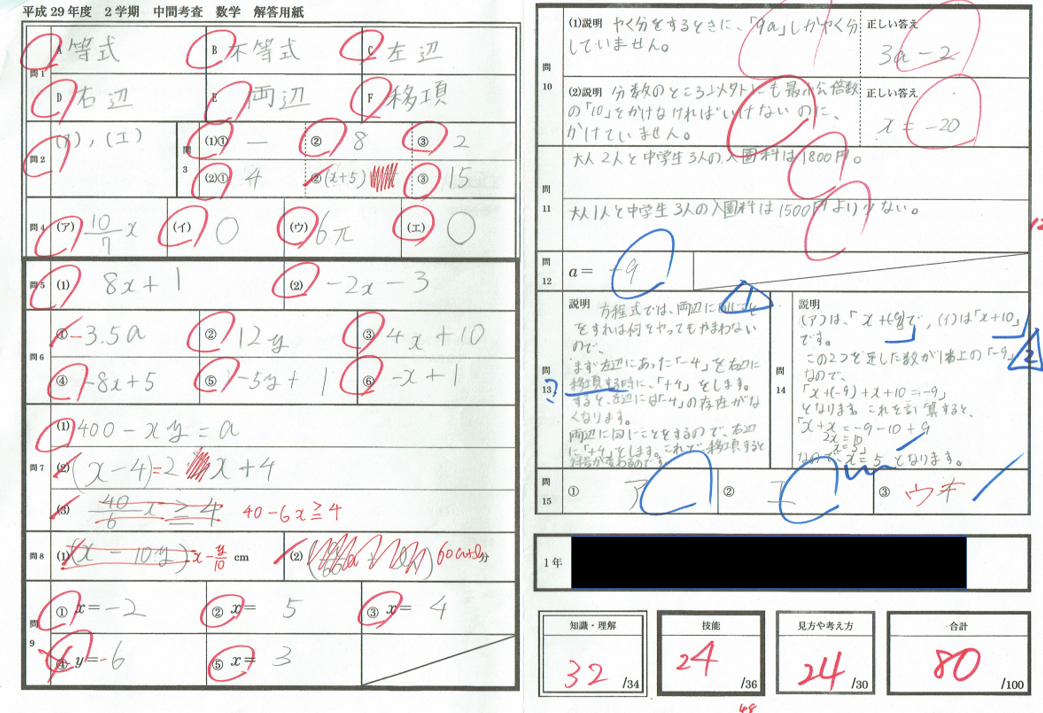 平成 29 年度 2 学期 中間考査 数学 解答用紙
問1
A 等式 B 不等式 C 左辺
D 右辺 E 両辺 F 移項
問2 , (エ)
問3
(1)① ー ② 8 ③ 2
(2)① 4 ② (x+5) ③ 15
問4 (ア) 10/7 x (イ) 0 (ウ) 6π (エ) 0
問5 (1) 8x+1 (2) -2x-3
問6
① -3.5a ② 12y ③ 4x+10
④ -8x+5 ⑤ -5y+1 ⑥ -x+1
問7
(1) 400-xy=a
(2) (x-4)=2 x+4
(3) 40/6 x ≧ 4 40-6x≧4
問8 (1) (x-10y) x-y/10 cm (2) 60a+b 分
問9
① x=-2 ② x= 5 ③ x= 4
④ y=-6 ⑤ x= 3
問10
(1)説明 やく分をするときに、「9a」しかやく分
していません。
正しい答え
3a-2
(2)説明 分数のところ以外にも最小公倍数
の「10」をかけなければいけないのに、
かけていません。
正しい答え
x=-20
問11
大人2人と中学生3人の入園料は1800円。
大人1人と中学生3人の入園料は1500円より少ない。
12
問12 a= -9
問13
説明 方程式では、両辺に同じこと
をすれば何をやってもかまわない
ので、
まず左辺にあった「-4」を右辺に
移項する時に、「+4」をします。
すると、左辺には「-4」の存在がな
くなります。
両辺に同じことをするので、右辺
に「+4」をします。これで移項すると
符号が変わるのです。
?
1
問14
説明
(ア)は、「x+(-9)」で、(イ)は「x+10」
です。
この2つを足した数が1番上の「-9」
なので、
「x+(-9)+x+10=-9」
となります。これを計算すると、
「x+x=-9-10+9
2x=10
x=5」
なので x=5 となります。
2
問15 ① ア ② エ ③ ウキ
1年
知識・理解
32 /34
技能
24 /36
見方や考え方
24 /30
合計
80 /100
48